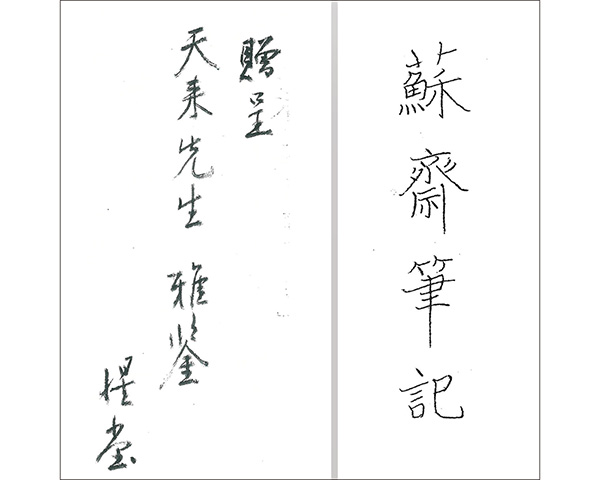 蘇齋筆記
贈呈
天来先生 雅鑒
惺堂